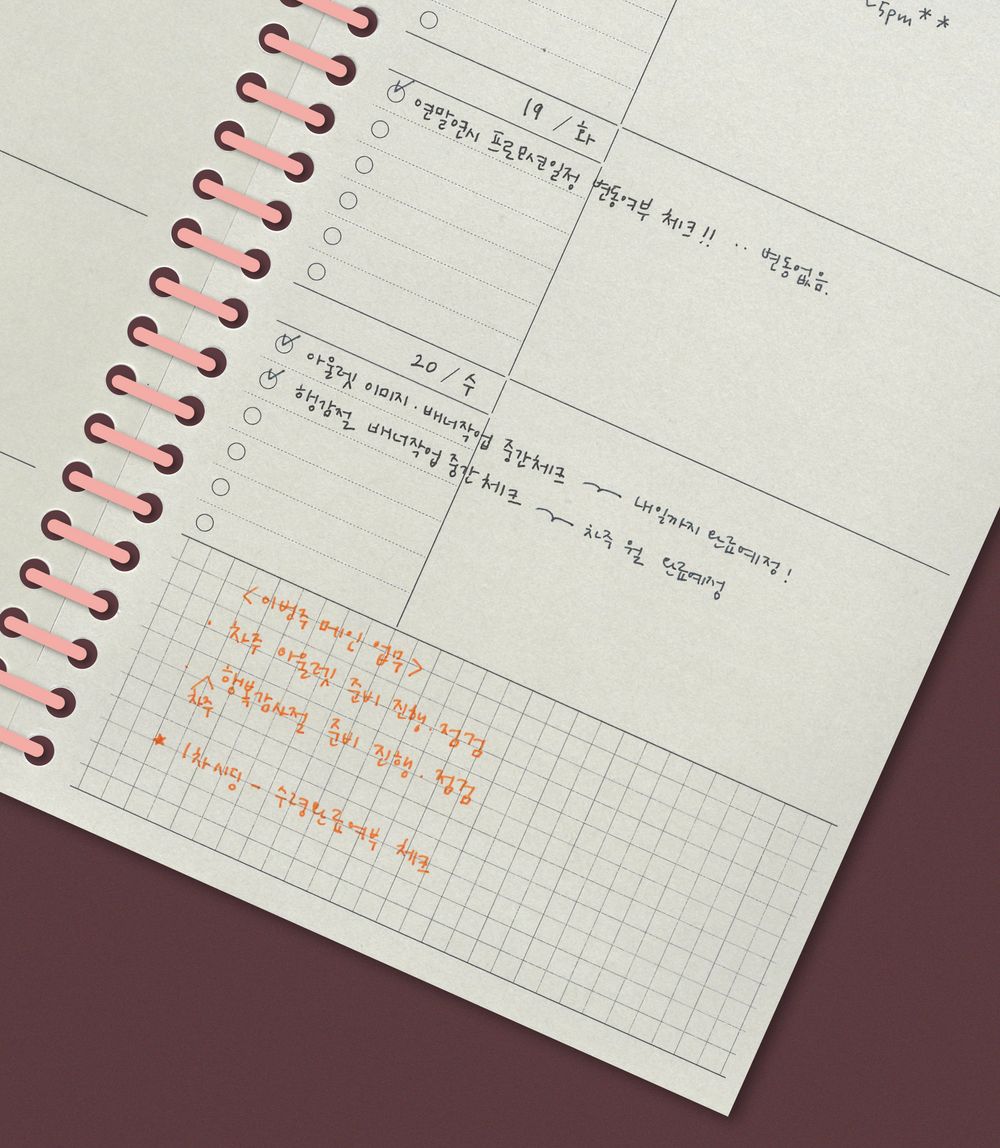 ~5pm**
19 / 화
연말연시 프로모션일정 변동여부 체크!! ·· 변동없음.
20 / 수
아울렛 이미지·배너작업 중간체크 ~ 내일까지 완료예정!
행감절 배너작업 중간체크 ~ 차주 월 완료예정
<이번주 메인 업무>
· 차주 아울렛 준비 진행·점검
· 행복감사절 준비 진행·점검
차주
* 1차시딩 - 수령완료여부 체크